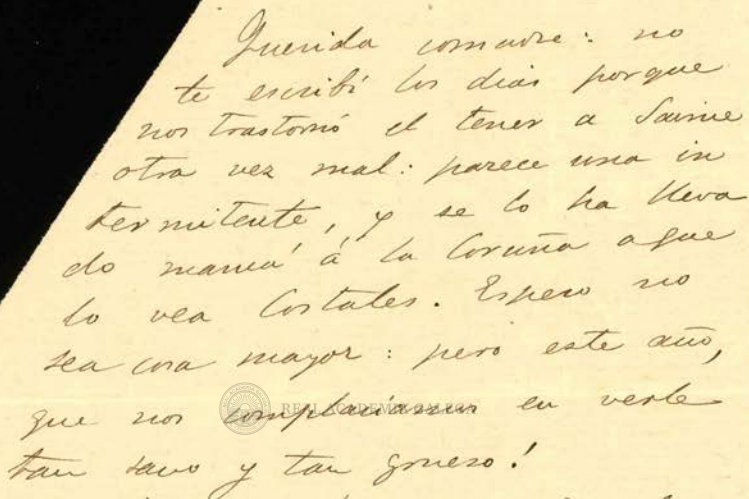 Querida comadre: no
te escribí los dias porque
nos trastornó el tener a Jaime
otra vez mal: parece una in
termitente, y se lo ha lleva
do mamá á la Coruña a que
lo vea Costales. Espero no
sea cosa mayor: pero este año,
que nos complaciamos en verle
tan sano y tan grueso!
REAL ACADEMIA GALEGA